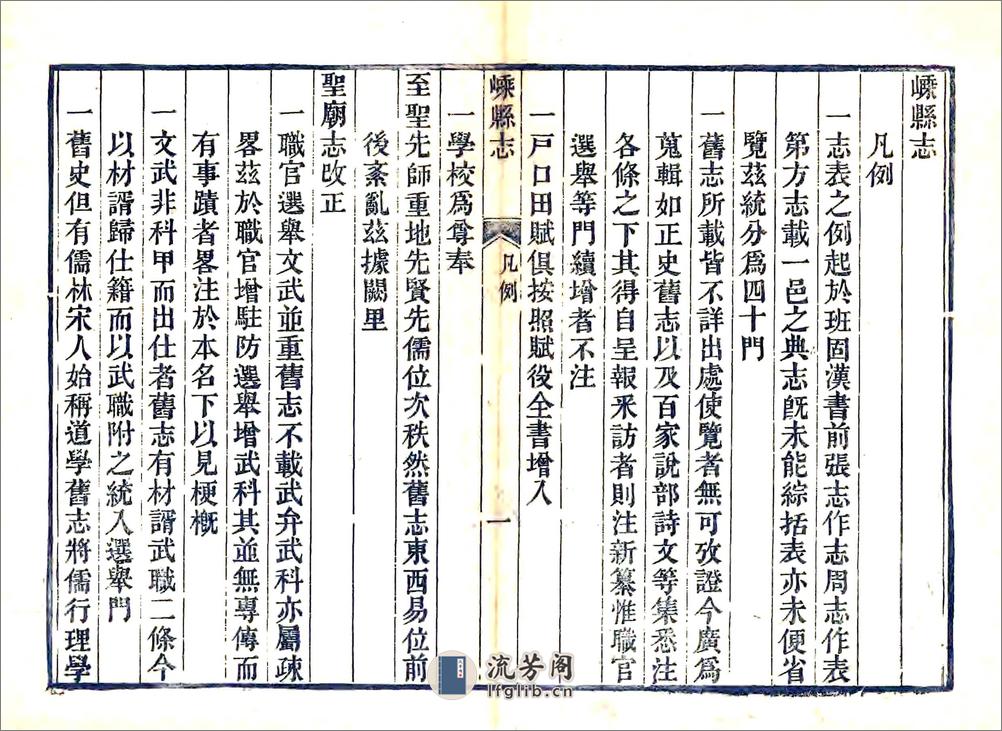 嵊縣志
凡例
一志表之例起於班固漢書前張志作志周志作表
第方志載一邑之典志旣未能綜括表亦未便省
覽茲統分爲四十門
一舊志所載皆不詳出處使覽者無可攷證今廣爲
蒐輯如正史舊志以及百家說部詩文等集悉注
各條之下其得自呈報釆訪者則注新纂惟職官
選舉等門續增者不注
一戸口田賦俱按照賦役全書增入
嵊縣志
凡例
一
一學校爲尊奉
至聖先師重地先賢先儒位次秩然舊志東西易位前
後紊亂茲據闕里
聖廟志改正
一職官選舉文武並重舊志不載武弁武科亦屬疎
畧茲於職官增駐防選舉增武科其並無專傳而
有事蹟者畧注於本名下以見梗槪
一文武非科甲而出仕者舊志有材諝武職二條今
以材諝歸仕籍而以武職附之統入選舉門
一舊史但有儒林宋人始稱道學舊志將儒行理學
流芳阁
lfglib.cn